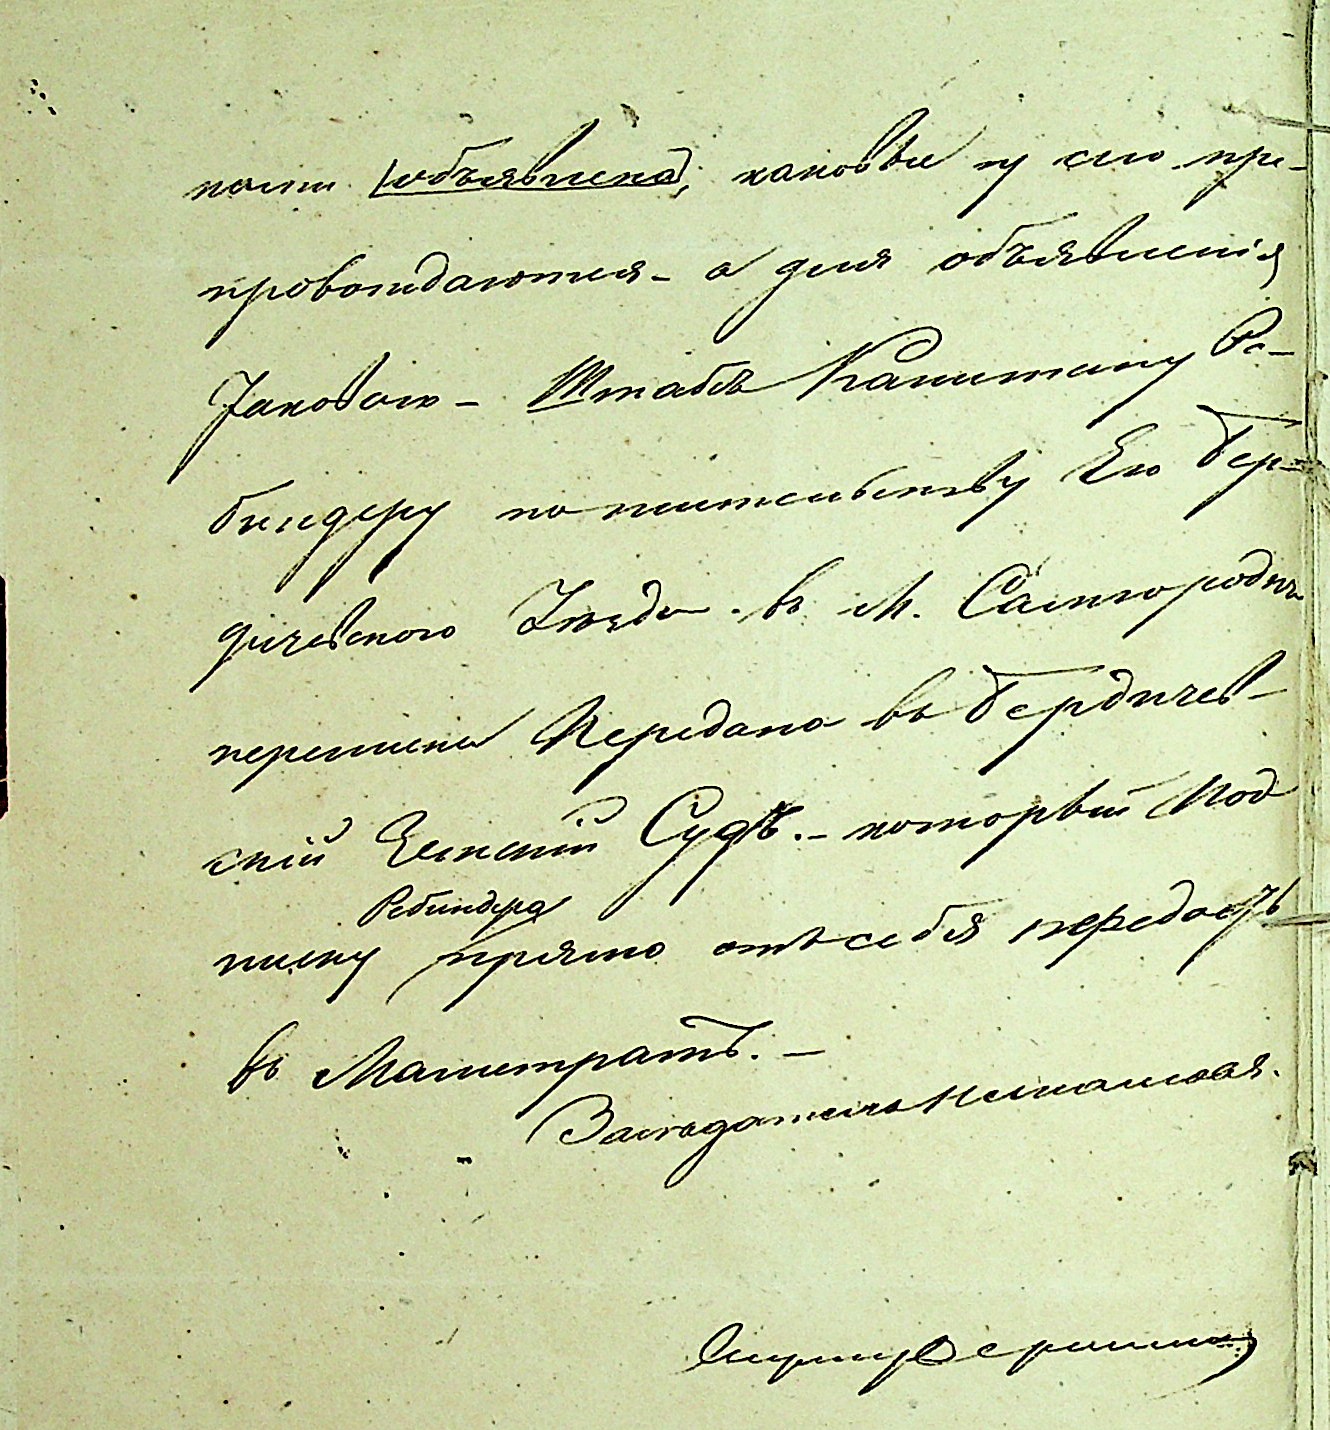 объявлена, каковые у сего пре-
провождаются - а для объявленія
Таковаго - Штабсъ Капитану Ре-
биндеру по жительству Его Бер-
дичевского Уезда. въ М. Самгородкъ
Передана въ Бердичев-
скій Земскій Судъ. - который Под
Ребиндера
писку прямо отъ себя передастъ
въ Магистратъ. -
Заседатель